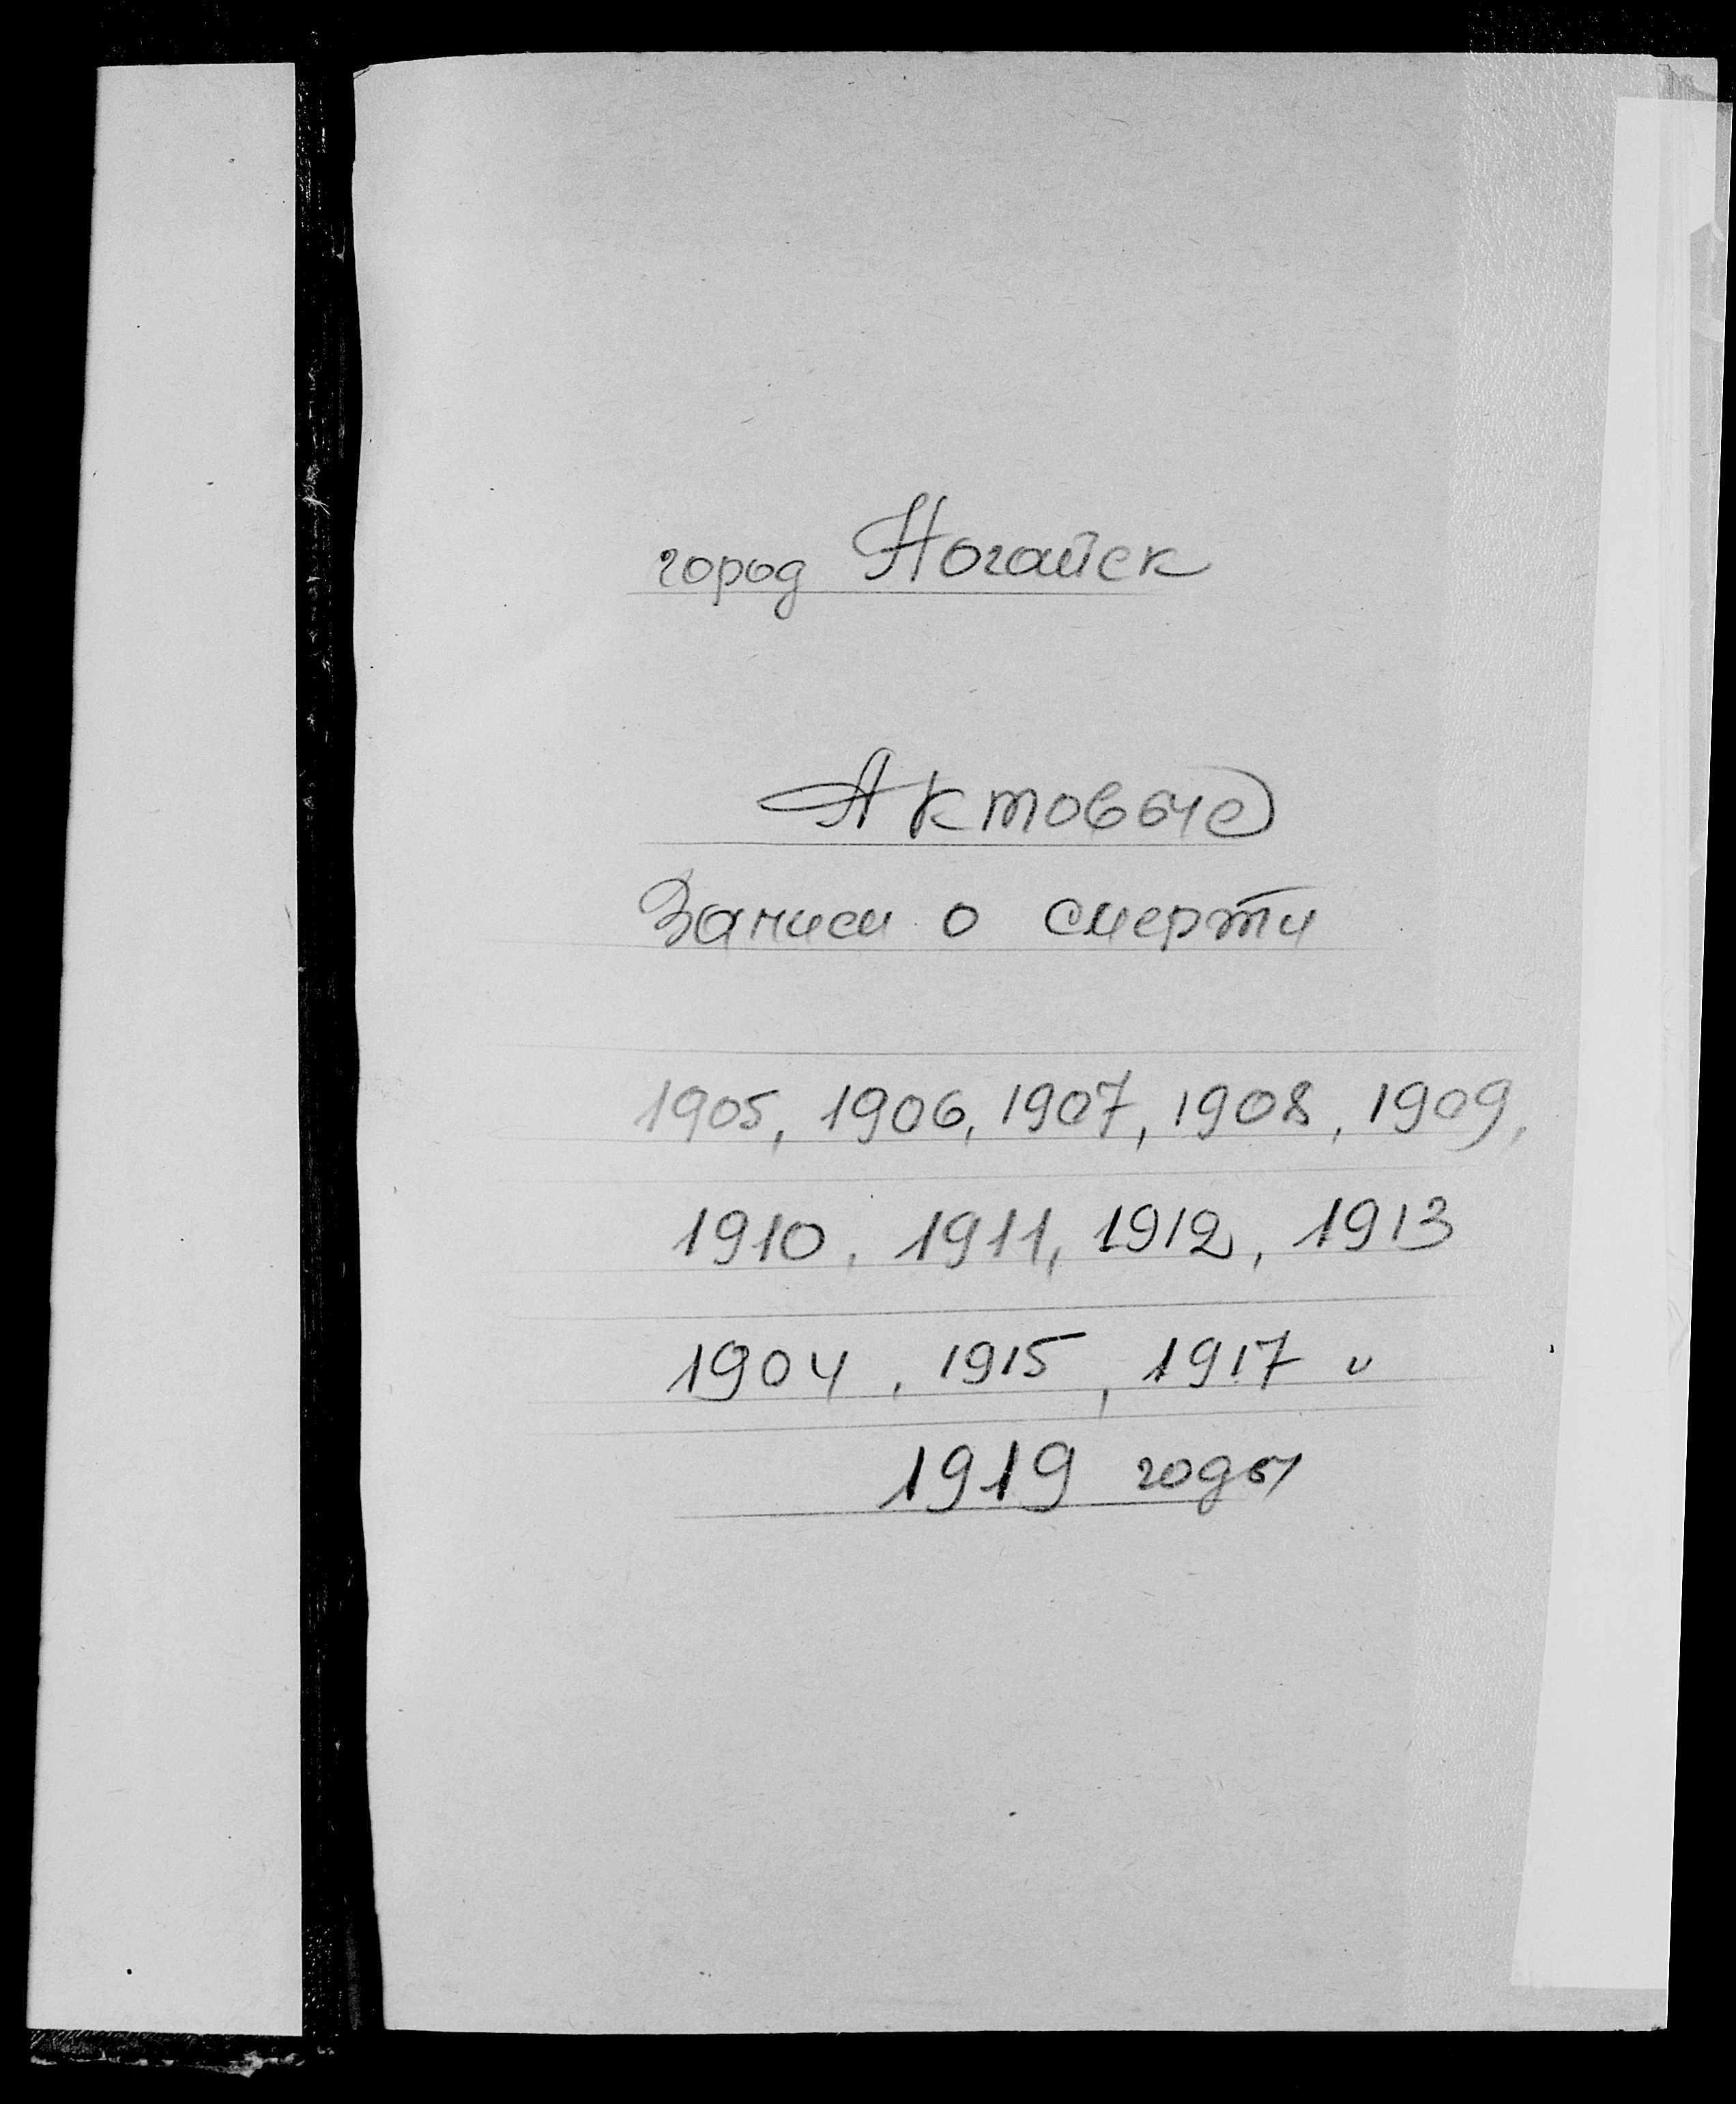 город Ногайск
Актовые
Записи о смерти
1905, 1906, 1907, 1908, 1909,
1910, 1911, 1912, 1913
1904, 1915, 1917 и
1919 годы